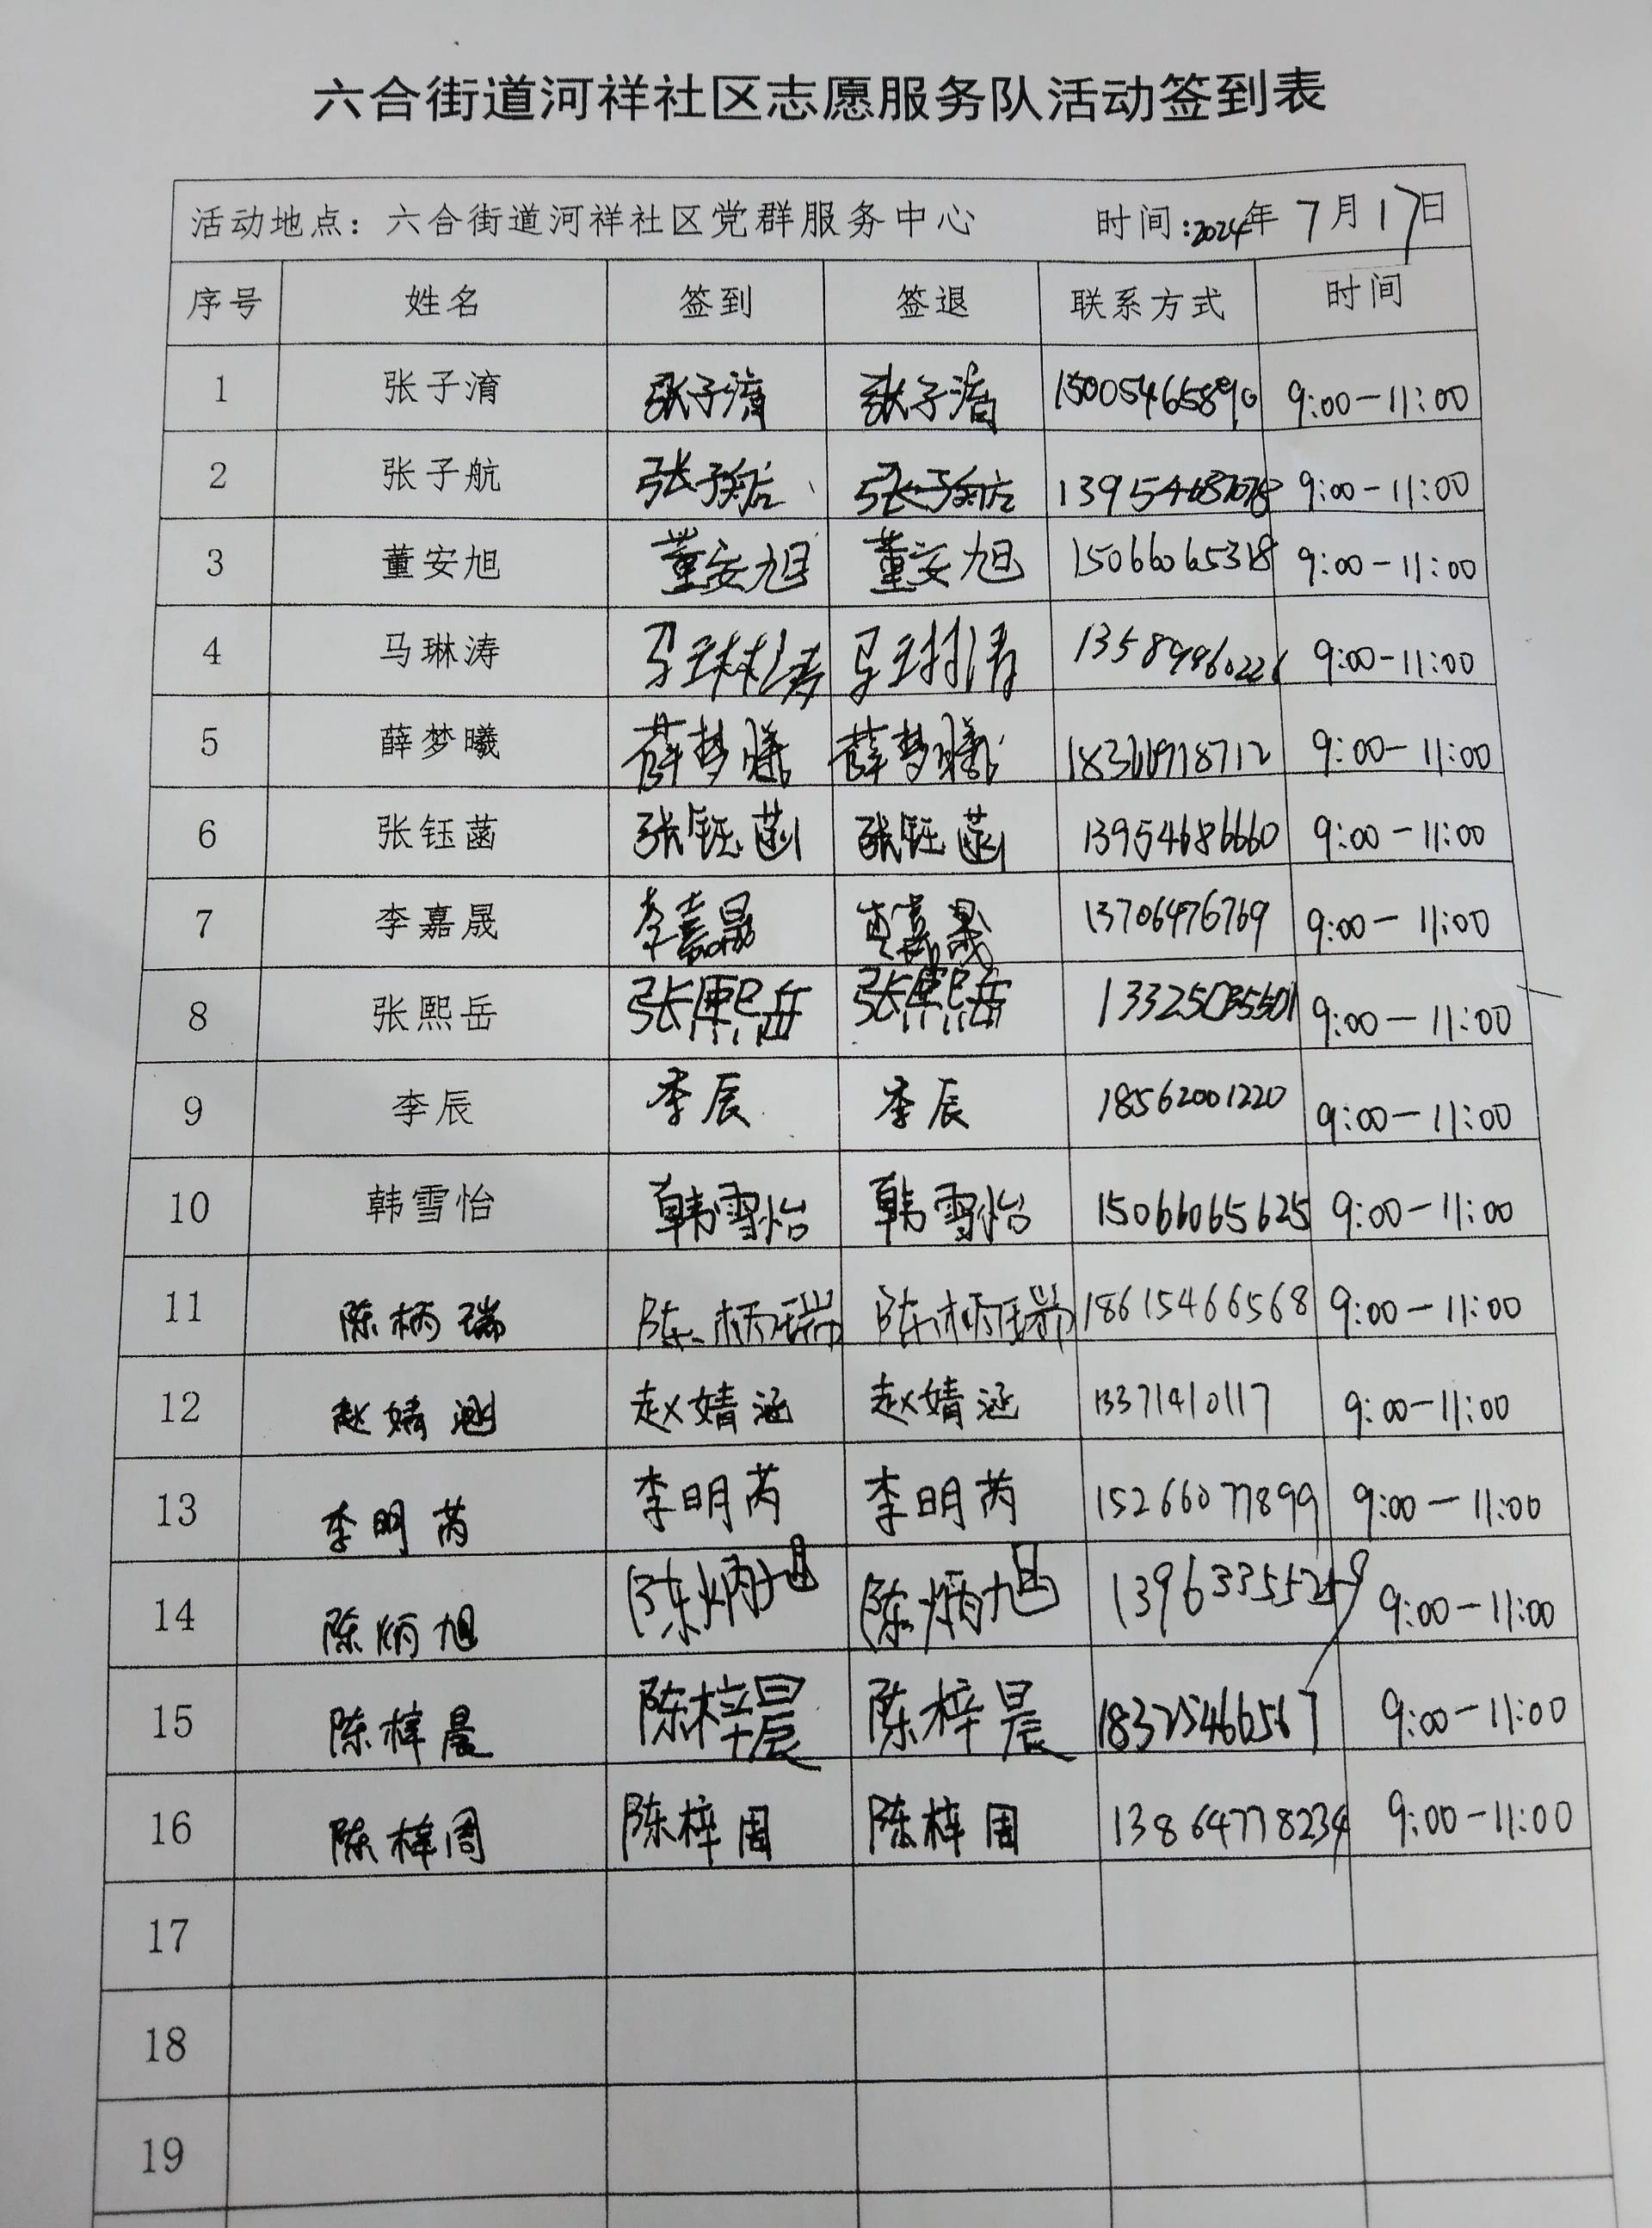 六合街道河祥社区志愿服务队活动签到表
活动地点：六合街道河祥社区党群服务中心 时间:2024年7月17日
序号 姓名 签到 签退 联系方式 时间
1 张子淯 张子淯 张子淯 15005465890 9:00-11:00
2 张子航 张子航 张子航 9:00-11:00
3 董安旭 董安旭 董安旭 15066065318 9:00-11:00
4 马琳涛 马琳涛 马琳涛 13589960226 9:00-11:00
5 薛梦曦 薛梦曦 薛梦曦 9:00-11:00
6 张钰菡 张钰菡 张钰菡 13954686660 9:00-11:00
7 李嘉晟 李嘉晟 李嘉晟 13706476769 9:00-11:00
8 张熙岳 张熙岳 张熙岳 9:00-11:00
9 李辰 李辰 李辰 18562001220 9:00-11:00
10 韩雪怡 韩雪怡 韩雪怡 15066065625 9:00-11:00
11 陈柄瑞 陈柄瑞 陈柄瑞 18615466568 9:00-11:00
12 赵婧涵 赵婧涵 赵婧涵 13371410117 9:00-11:00
13 李明芮 李明芮 李明芮 15266077899 9:00-11:00
14 陈炳旭 陈炳旭 陈炳旭 9:00-11:00
15 陈梓晨 陈梓晨 陈梓晨 18325466567 9:00-11:00
16 陈梓周 陈梓周 陈梓周 13864778234 9:00-11:00
17
18
19